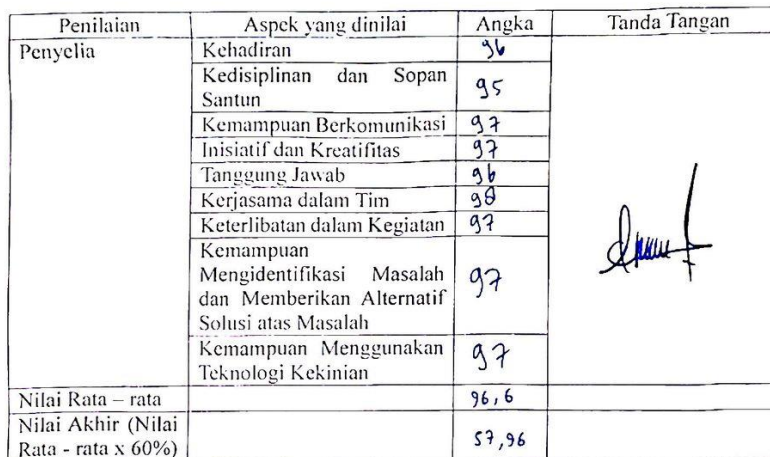 Penilaian Aspek yang dinilai Angka Tanda Tangan
Penyelia Kehadiran 96
Kedisiplinan dan Sopan
Santun 95
Kemampuan Berkomunikasi 97
Inisiatif dan Kreatifitas 97
Tanggung Jawab 96
Kerjasama dalam Tim 98
Keterlibatan dalam Kegiatan 97
Kemampuan
Mengidentifikasi Masalah
dan Memberikan Alternatif
Solusi atas Masalah 97
Kemampuan Menggunakan
Teknologi Kekinian 97
Nilai Rata – rata 96,6
Nilai Akhir (Nilai
Rata - rata x 60%) 57,96